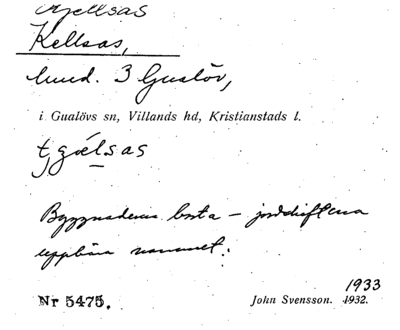 Kjellsas
Kellsas,
und. 3 Gualöv,
i Gualövs sn, Villands hd, Kristianstads l.
sas
Byggnaderna borta – jordskiftena
uppbära namnet.
1933
Nr 5475. John Svensson. 1932.